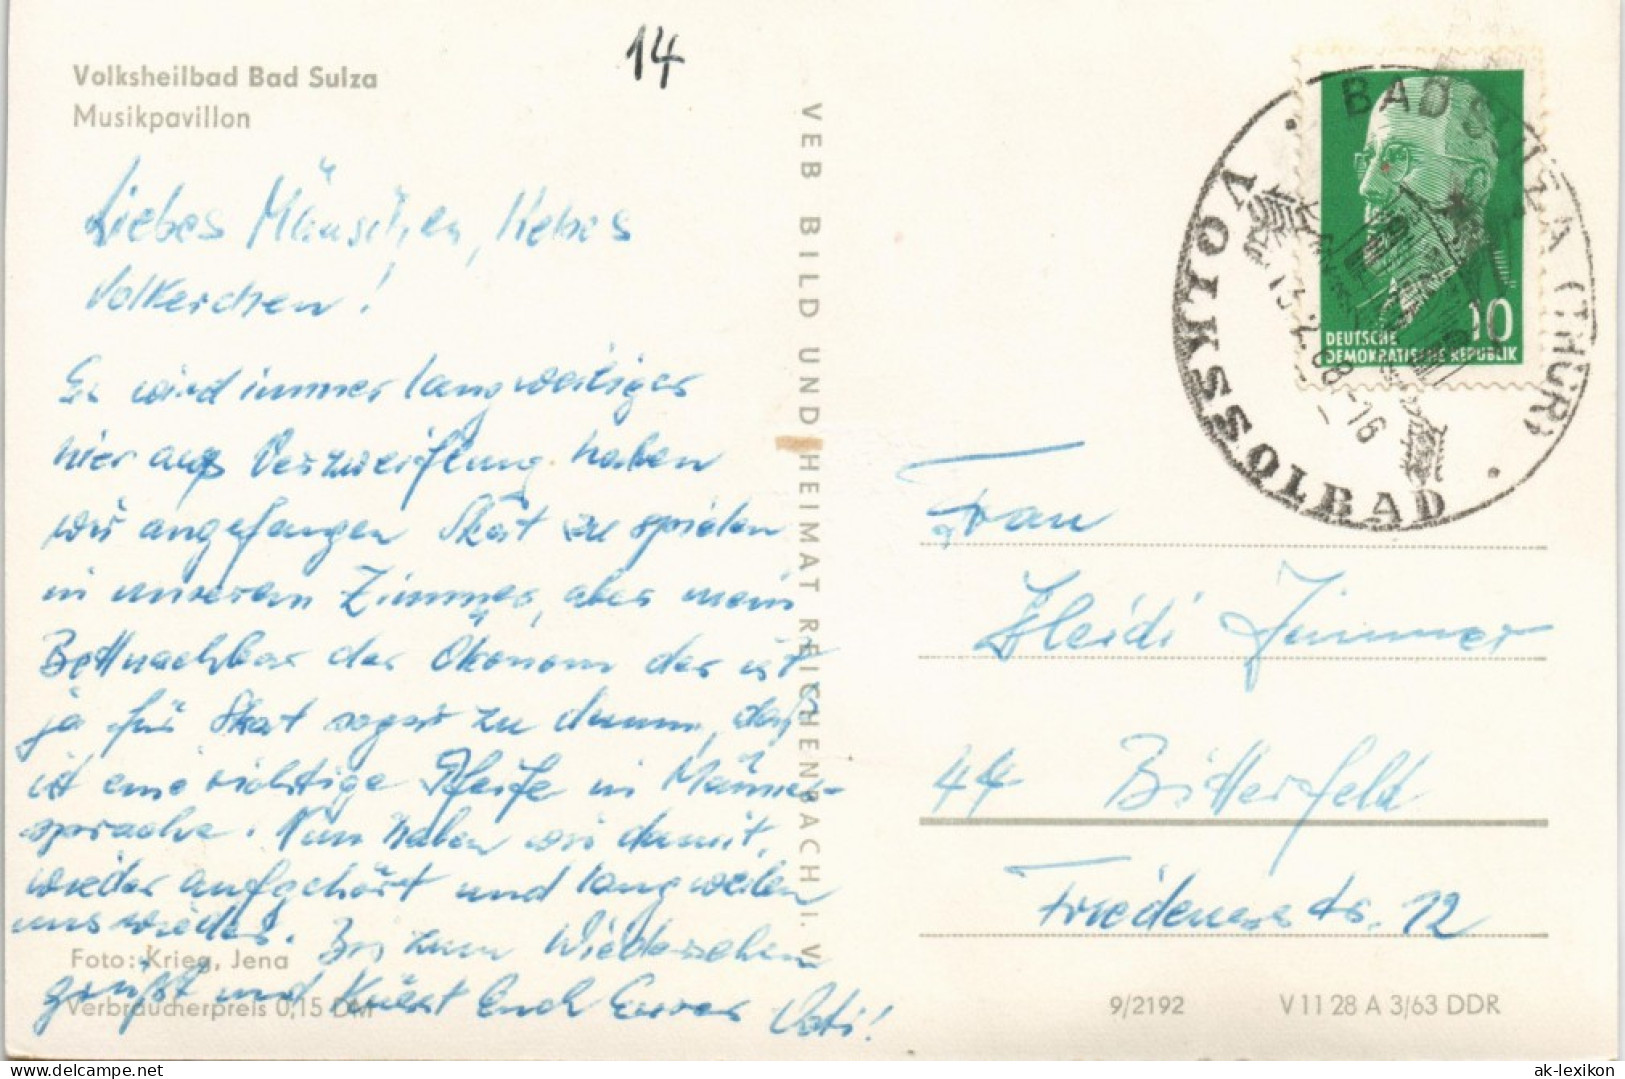 14
Volksheilbad Bad Sulza
Musikpavillon
Liebes Mäuschen, liebes
Volkerchen!
Es wird immer langweiliger
hier aus Verzweiflung haben
wir angefangen Skat zu spielen
in unserem Zimmer, aber mein
Bettnachbar der Ökonom der ist
ja für Skat sogar zu dumm, das
ist eine richtige Pfeife in Männer-
sprache. Nun haben wir damit,
wieder aufgehört und langweilen
uns wieder. Bis zum Wiedersehen
grüßt und küsst Euch Euer Vati!
Foto: Krieg, Jena
Verbraucherpreis 0,15 DM
VEB BILD UND HEIMAT REICHENBACH I. V.
BAD SULZA (THÜR)
VOLKSSOLBAD
13.2.68-16
10
DEUTSCHE
DEMOKRATISCHE REPUBLIK
Frau
Heidi Zimmer
44 Bitterfeld
Friedensstr. 12
9/2192 V 11 28 A 3/63 DDR
ak-lexikon
www.delcampe.net